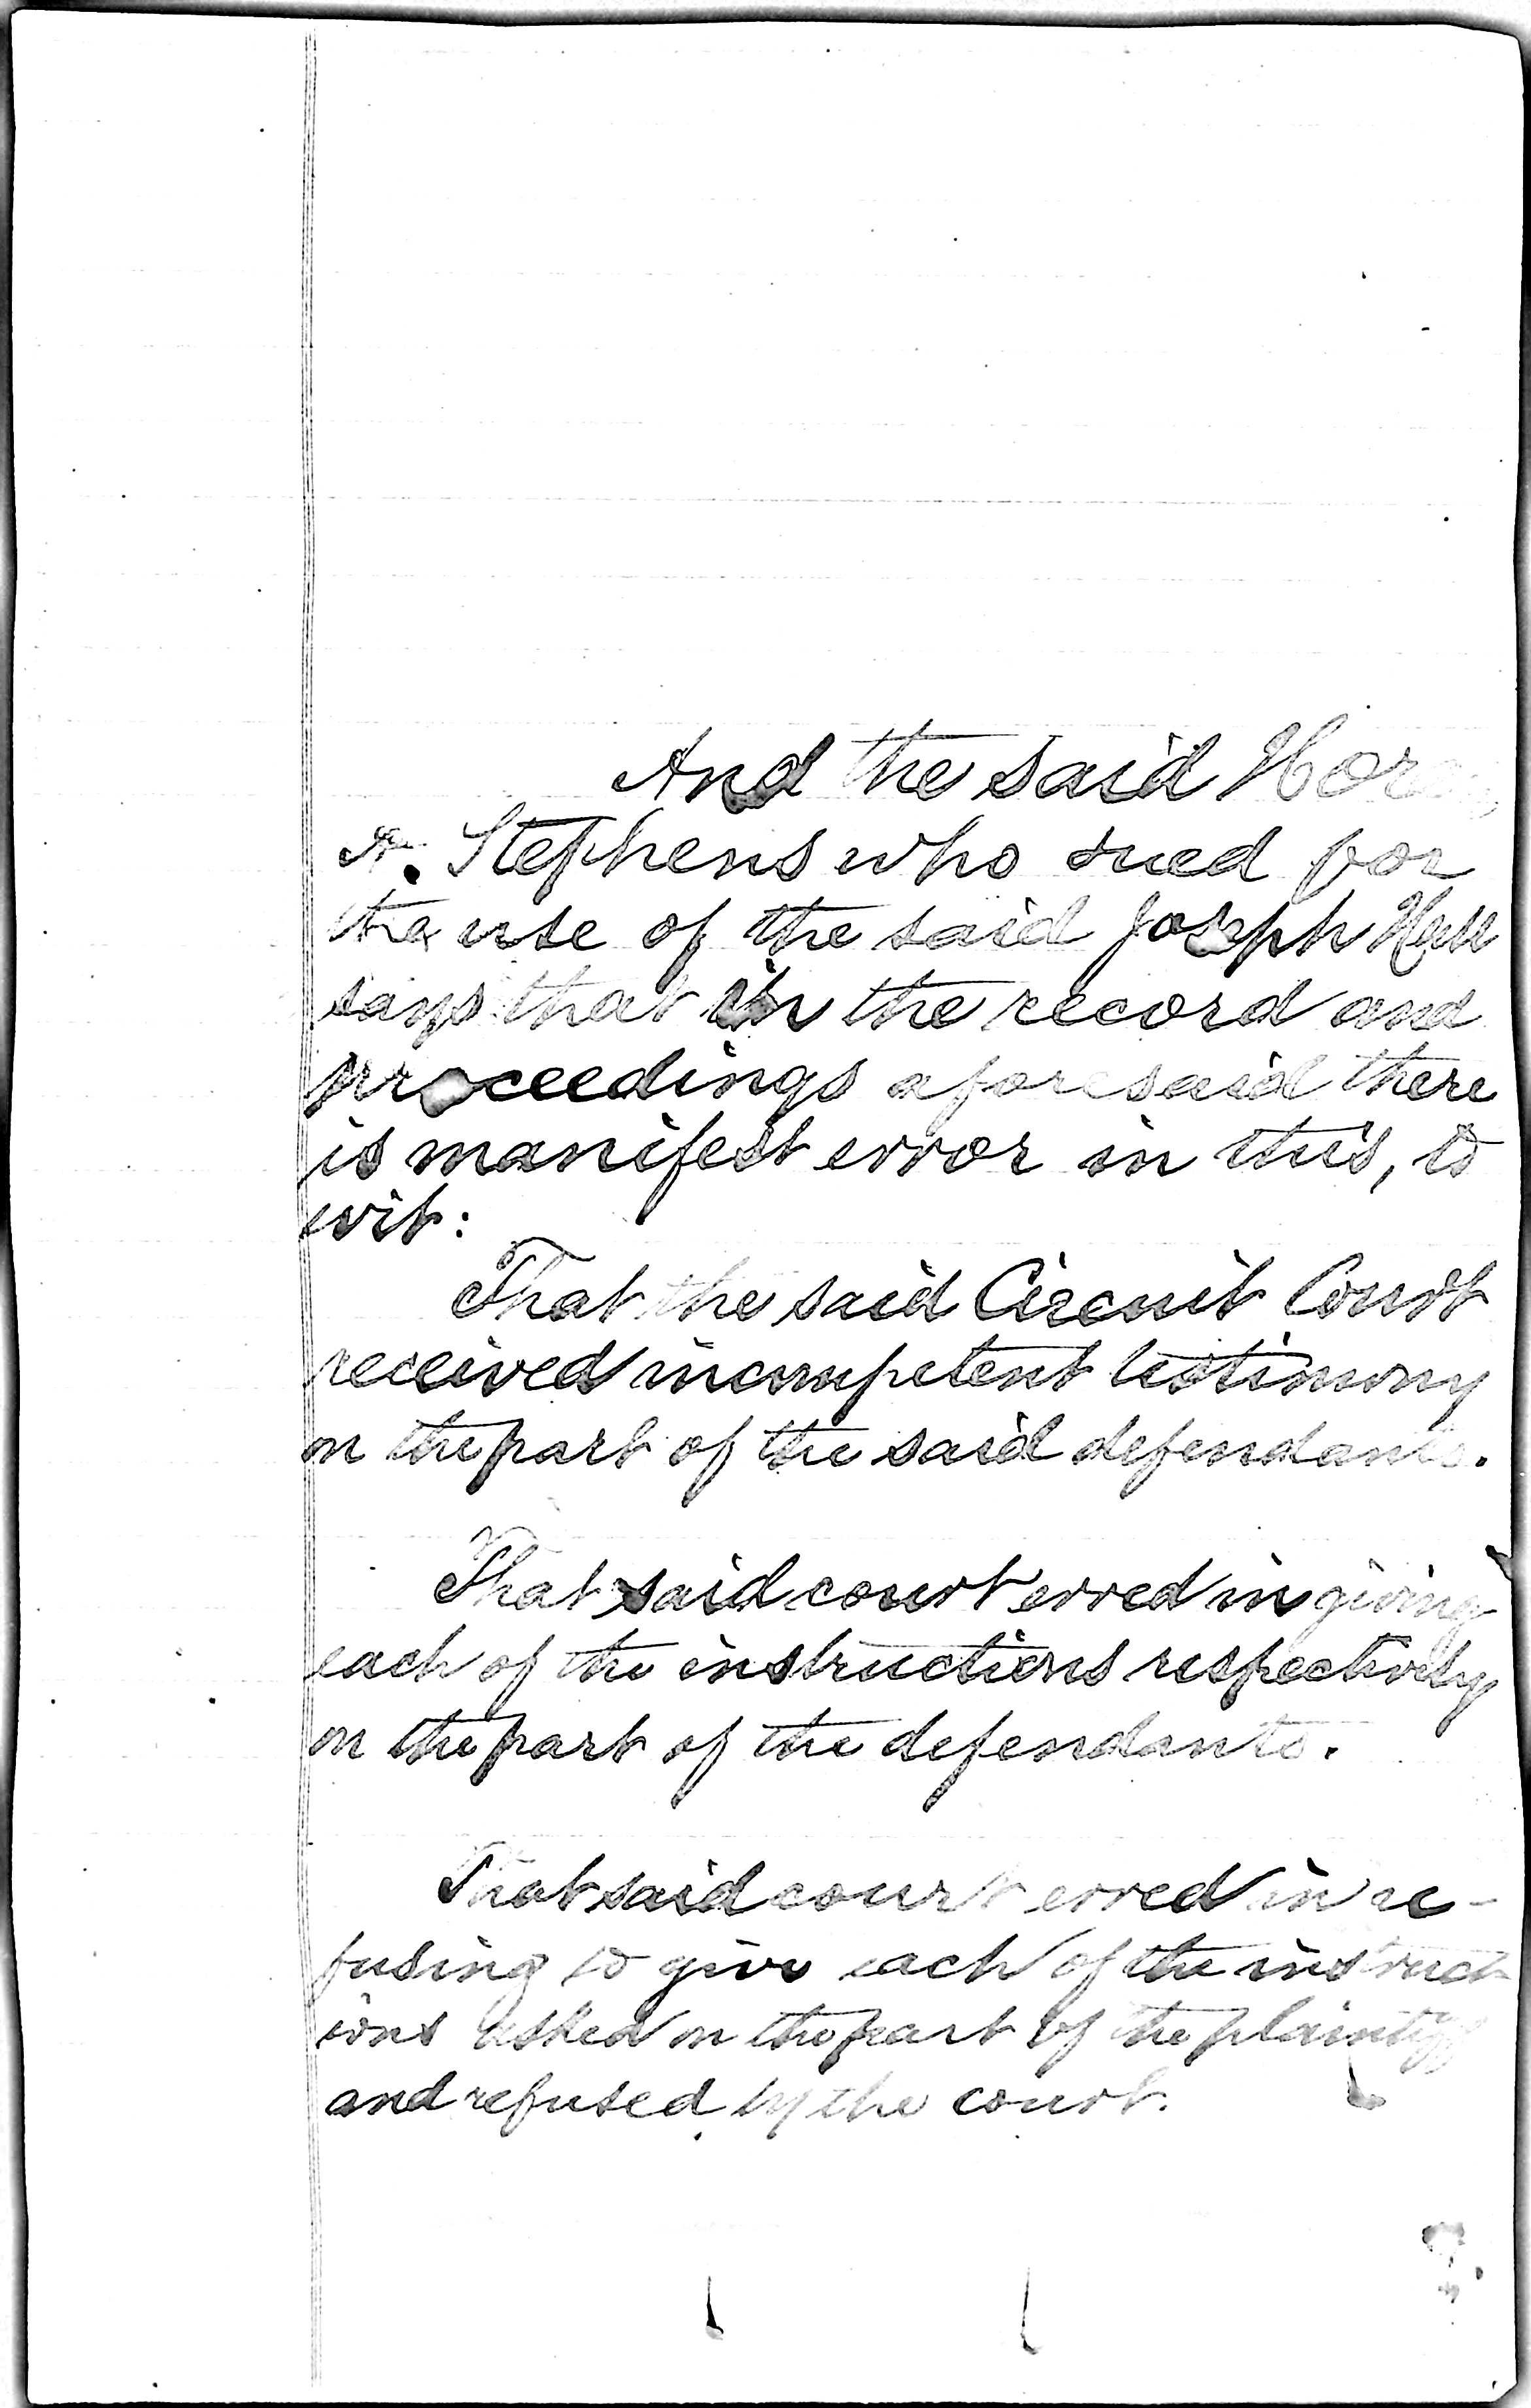 And the said
A. Stephens who sued for
the use of the said Joseph Hull
says that in the record and
proceedings aforesaid there
is manifest error in this, to
wit:
That the said Circuit Court
received incompetent testimony
on the part of the said defendants.
That said court erred in giving
each of the instructions respectively
on the part of the defendants.
That said court erred in re-
fusing to give each of the instruct-
ions asked on the part of the plaintiff
and refused by the court.